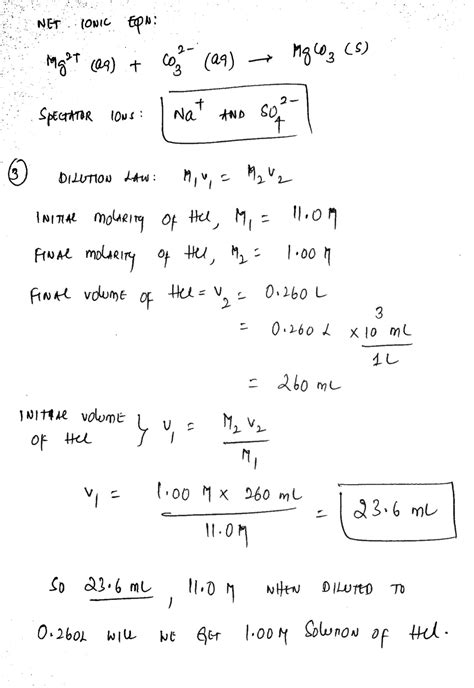 NET IONIC EQN:
Mg²⁺ (aq) + CO₃²⁻ (aq) → MgCO₃ (s)
SPECTATOR IONS: Na⁺ AND SO₄²⁻
③ DILUTION LAW: M₁V₁ = M₂V₂
INITIAL MOLARITY OF HCl, M₁ = 11.0 M
FINAL MOLARITY OF HCl, M₂ = 1.00 M
FINAL VOLUME OF HCl = V₂ = 0.260 L
= 0.260 L × 10³ mL / 1L
= 260 mL
INITIAL VOLUME OF HCl } V₁ = M₂V₂ / M₁
V₁ = 1.00 M × 260 mL / 11.0 M = 23.6 mL
SO 23.6 mL, 11.0 M WHEN DILUTED TO
0.260L WILL WE GET 1.00M SOLUTION OF HCl.